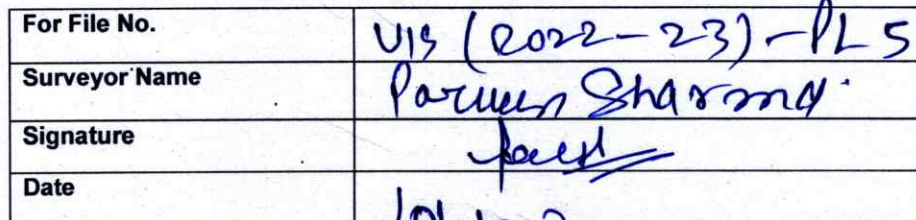 For File No. VIS (2022-23)-PL5
Surveyor Name Parveen Sharma
Signature
Date